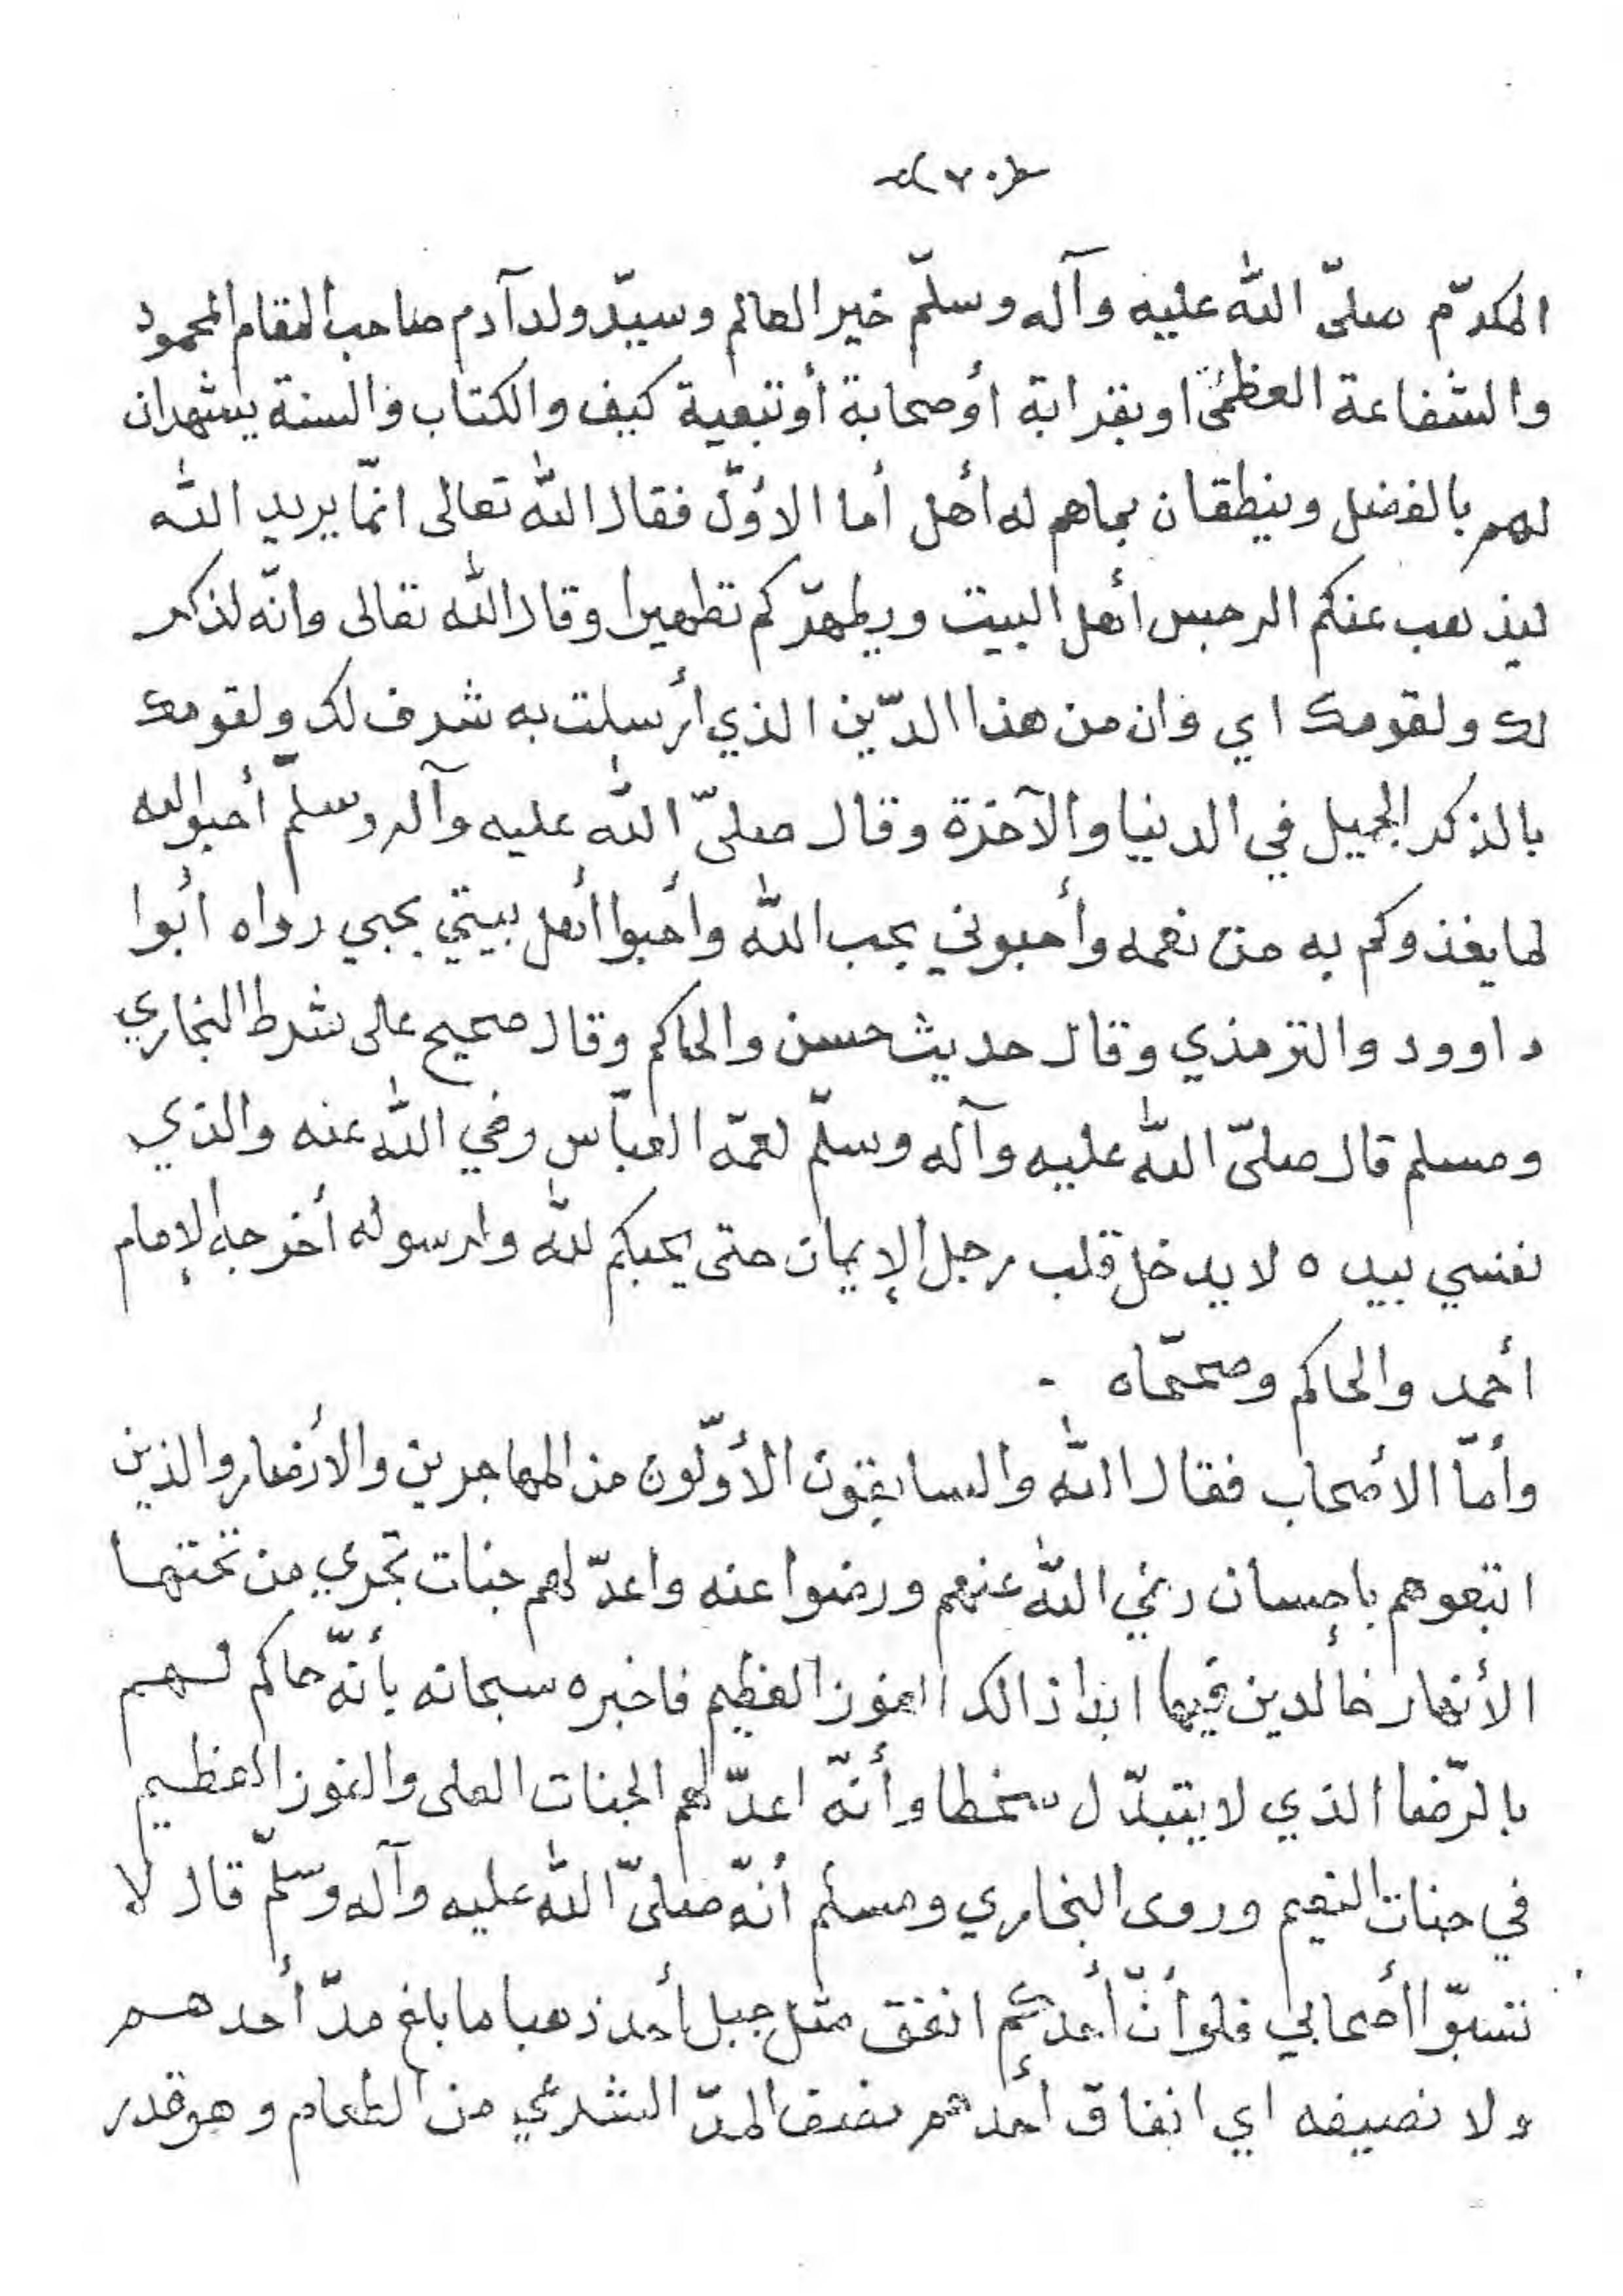 (٧٠)
المكرّم صلىّ الله عليه وآله وسلّم خير العالم وسيّد ولد آدم صاحب المقام المحمود
والشفاعة العظمى او بقرابة أوصحابة أوتبعية كيف والكتاب والسنة يشهدان
لهم بالفضل وينطقان بماهم له أهل أما الاوّل فقال الله تعالى انمّا يريد الله
ليذهب عنكم الرجس أهل البيت ويطهرّكم تطهيرا وقال الله تعالى وانّه لذكر
لك ولقومك اي وان من هذا الدّين الذي أرسلت به شرف لك ولقومك
بالذكر الجميل في الدنيا والآخرة وقال صلىّ الله عليه وآله وسلمّ أحبوالله
لما يغذوكم به من نعمه وأحبوني بحب الله وأحبوا أهل بيتي بحبي رواه أبوا
داوود والترمذي وقال حديث حسن والحاكم وقال صحيح على شرط البخاري
ومسلم قال صلىّ الله عليه وآله وسلمّ لعمّه العبّاس رضي الله عنه والذي
نفسي بيده لا يدخل قلب رجل الإيمان حتى يحبكم لله ولرسوله أخرجه الإمام
أحمد والحاكم وصححّاه .
وأمّا الأصحاب فقال الله والسابقون الأوّلون من المهاجرين والأنصار والذين
اتبعوهم بإحسان رضي الله عنهم ورضوا عنه واعدّ لهم جنات تجري من تحتها
الأنهار خالدين فيها ابدا ذالك الفوز العظيم فاخبره سبحانه بأنّه حاكم لهم
بالرّضا الذي لا يتبدّل سخطا وأنّه اعدّ لهم الجنات العلى والفوز العظيم
في جنات النعيم وروى البخاري ومسلم أنّه صلىّ الله عليه وآله وسلّم قال لا
تسبوّا أصحابي فلوأنّ أحدكم انفق مثل جبل أحد ذهبا ما بلغ مدّ أحدهم
ولا نصيفه اي انفاق أحدهم نصف المدّ الشرعي من الطعام وهو قدر